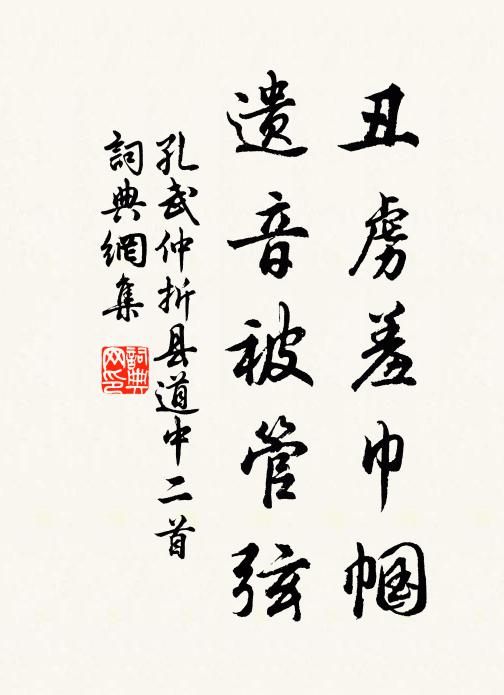 丑虏羞巾帼
遗音被管弦
孔武仲折县道中二首
詞典網集
詞典网印